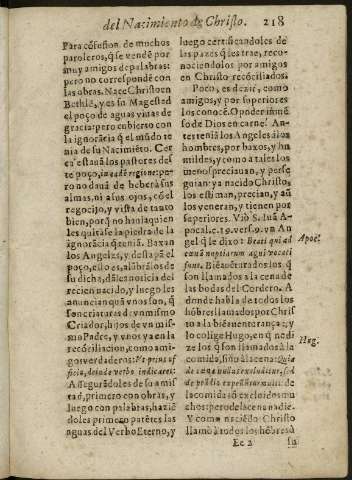 del Nacimiento de Christo. 218
Para cõfusion de muchos
paroleros, q̃ se vendẽ por
muy amigos de palabras:
pero no correspondẽ con
las obras. Nace Christo en
Bethlẽ, y es su Magestad
el poço de aguas vivas de
gracia: pero cubierto con
la ignorãcia q̃ el mũdo te
nia de su Nacimiẽto. Cer
ca estauã los pastores des
te poço, in eadẽ regione: pe-
ro no dauã de beber a sus
almas, ni a sus ojos, cõ el
regocijo, y vista de tanto
bien, porq̃ no hauia quien
les quitase la piedra de la
ignorãcia q̃ teniã. Baxan
los Angeles, y destapã el
poço, ello es, alũbrãlos de
su dicha, dãles noticia del
recien nacido, y luego les
anuncian quã vnos son, q̃
son criaturas de vn mismo
Criador, hijos de vn mis-
mo Padre, y vnos y a en la
recõciliacion, como ami-
gos verdaderos: Vt prius of
ficio, deinde verbo indicaret:
Assegurãdoles de su amis
tad, primero con obras, y
luego con palabras, haziẽ
doles primero patẽtes las
aguas del Verbo Eterno, y
luego certificandoles de
las pazes q̃ les trae, reco-
nociendolos por amigos
en Christo recõciliados.
Poco, es dezir, como
amigos, y por superiores
los conocẽ. O poder inmẽ
so de Dios en carne! An-
tes teniã los Angeles a los
hombres, por baxos, y hu
mildes, y como a tales los
menospreciauan, y perse
guian: ya nacido Christo,
los estiman, precian, y aũ
los veneran, y tienen por
superiores. Viò S. Iuã A-
pocal. c. 19. vers. 9. vn An
gel q̃ le dixo: Beati qui ad
cænã nuptiarum agni vocati
sunt. Biẽauẽturados los q̃
son llamados a la cena de
las bodas del Cordero. A
donde habla de todos los
hõbres llamados por Chris
to a la biẽauẽturança; y
lo colige Hugo, en q̃ no di
ze los q̃ son llamados a la
comida, sino a la cena: Quia
de cæna nullus excluditur, sed
de prãdio expellũtur multi: de
la comida sõ excluidos mu
chos: pero de la cena nadie.
Y como naciẽdo Christo
llamò a todos los hõbres à
Apoc.
Hug.
Ee 2 su